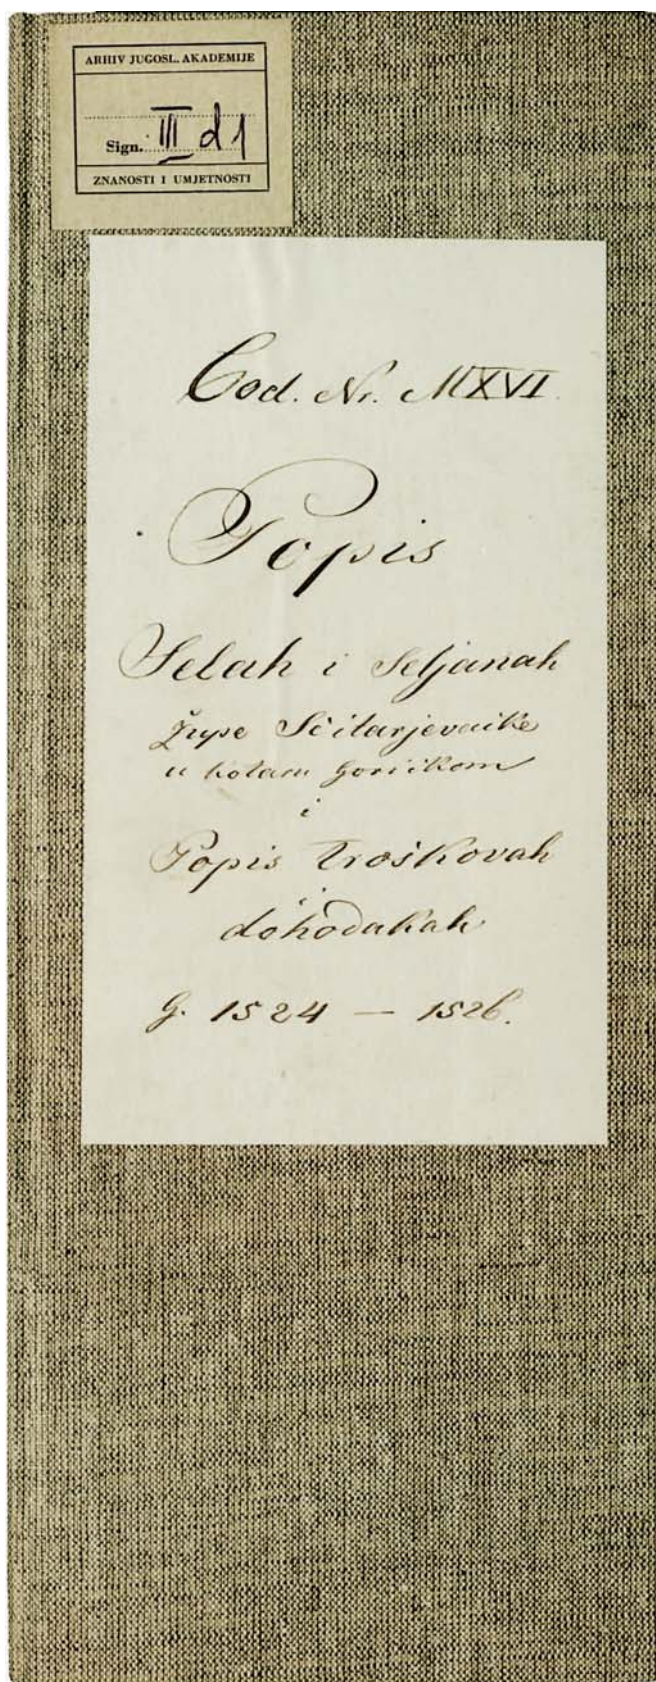 ARHIV JUGOSL. AKADEMIJE
Sign. III d 1
ZNANOSTI I UMJETNOSTI
Cod. Nr. MXVI.
Popis
Selah i Seljanah
župe Sćitarjevačke
u kotaru Goričkom
i
Popis troškovah
i
dohodakah
g. 1524 — 1526.